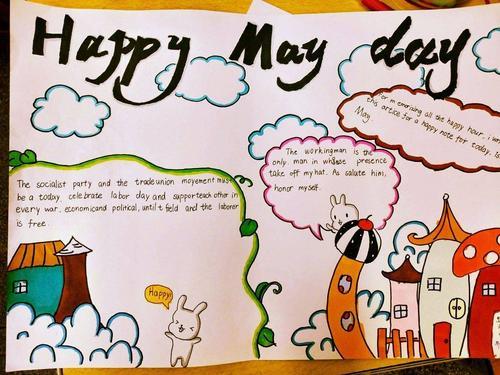 Happy May day
For memorising all the happy hour, I
this artice for a happy note for today.
May
The workingman is the
only man in whose presence
take off my hat. As salute him,
honor myself.
The socialist party and the tradeunion movement must
be a today. celebrate labor day and supporteach other in
every war, economicand political, until t field and the laborer
is free.
Happy!